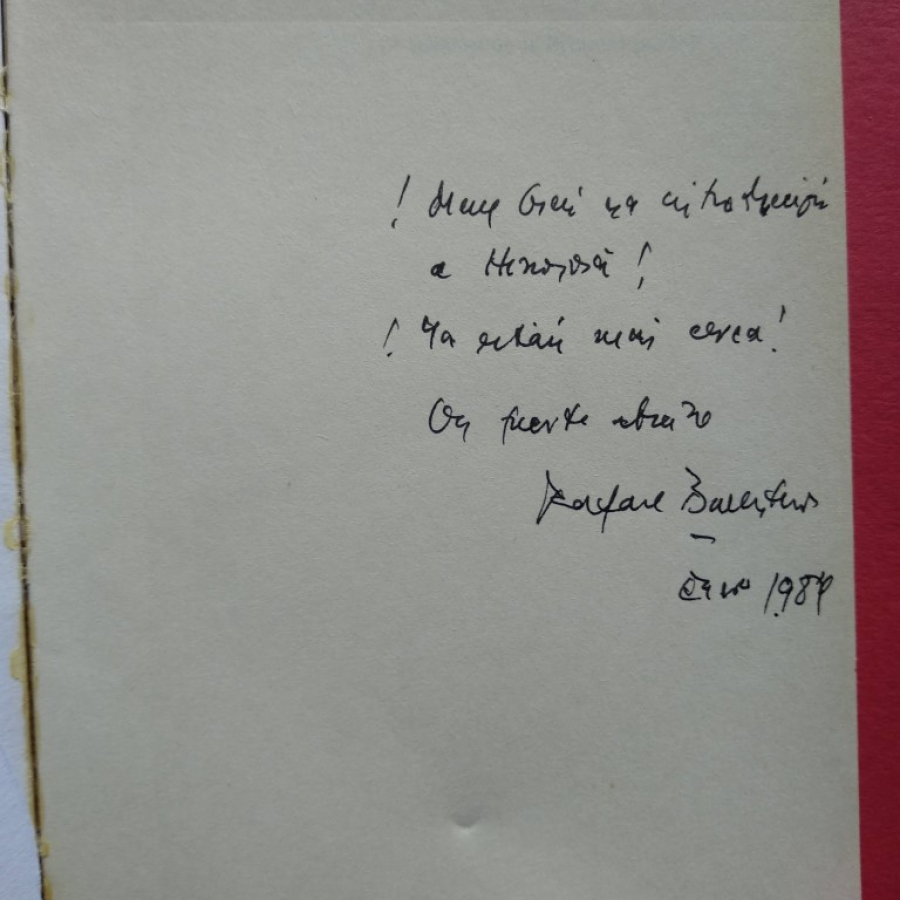 ! una introducción
a Hinojosa !
! Ya están más cerca !
Un fuerte abrazo
Rafael Ballesteros
Enero 1984